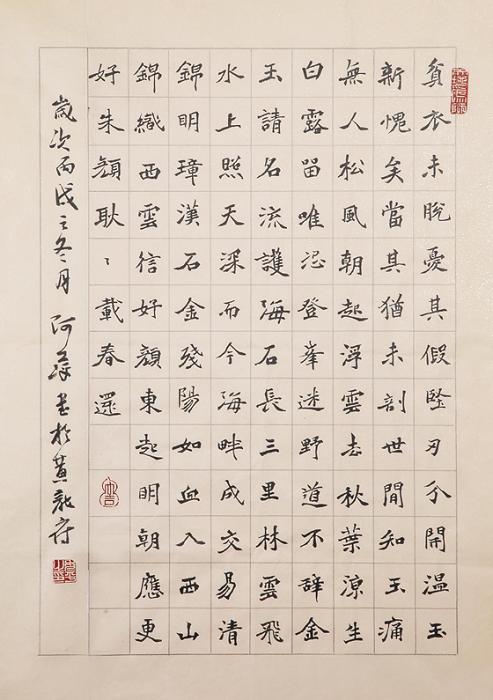 貧衣未脫憂其假堅刃分開温玉
新愧矣當其猶未剖世間知玉痛
無人松風朝起浮雲去秋葉凉生
白露留唯恐登峯迷野道不辭金
玉請名流護海石長三里林雲飛
水上照天深而今海畔成交易清
錦明璋漢石金殘陽如血入西山
錦織西雲信好顏東起明朝應更
好朱顏耿々載春還
歲次丙戌之冬月 阿書於黃府